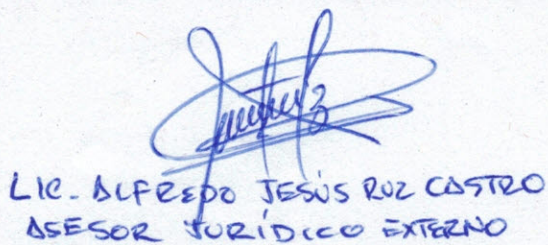 LIC. ALFREDO JESÚS RUZ CASTRO
ASESOR JURÍDICO EXTERNO